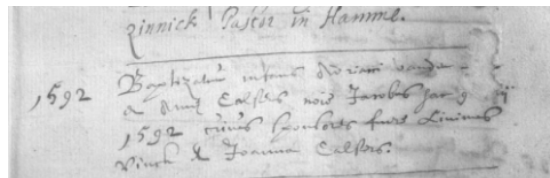 zinnick Pastor in Hamme.
1592 Baptizatus infans Adriani vande
& Anne Calsers noīe Jacobus hac 9
1592 cuius sponsores fuere Livinus
Vinck & Joanna Calsers.